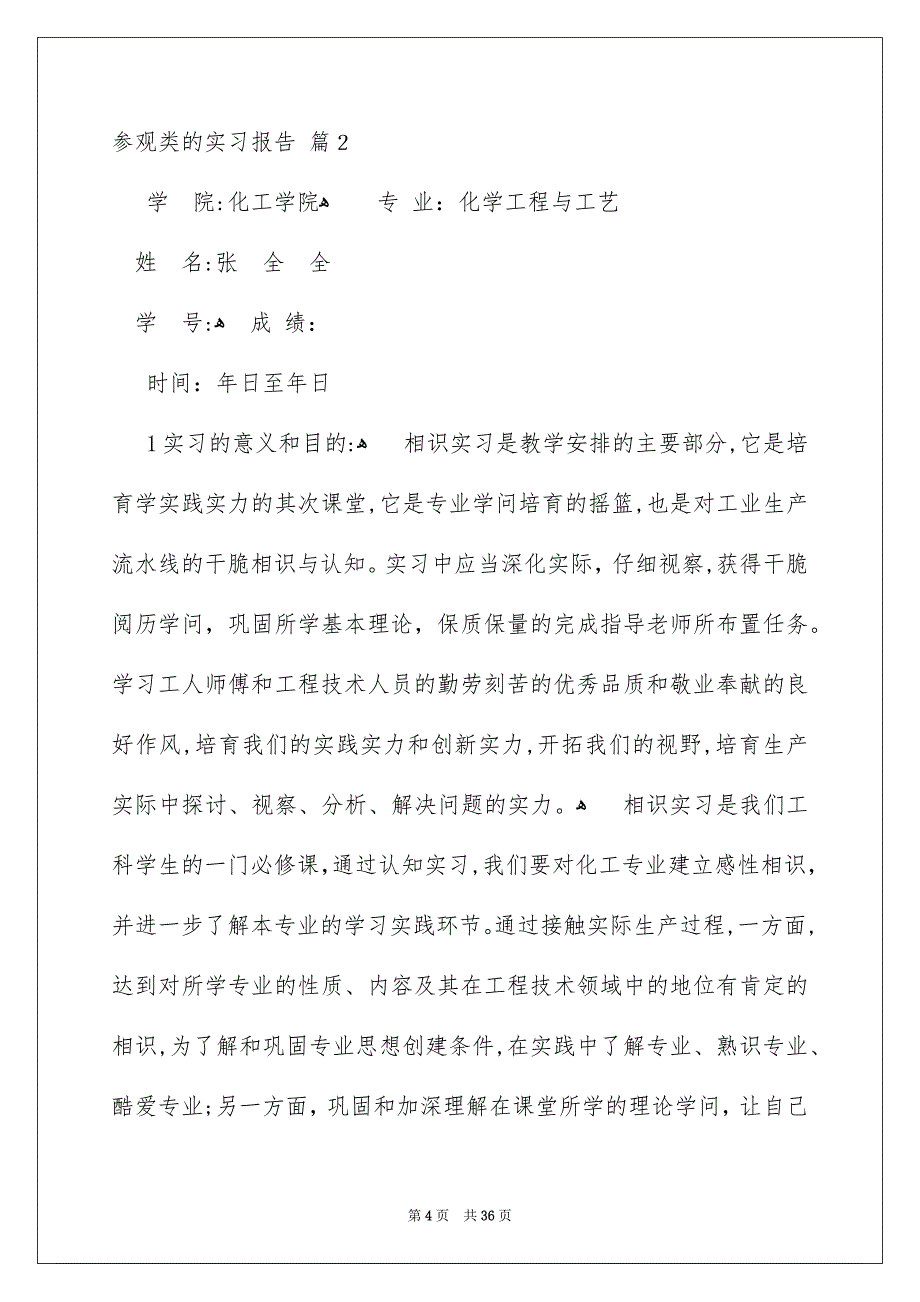 参观类的实习报告 篇2
学 院:化工学院ﻫ 专 业：化学工程与工艺
姓 名:张 全 全
学 号:ﻫ 成 绩：
时间：年日至年日
1实习的意义和目的:ﻫ 相识实习是教学安排的主要部分,它是培
育学实践实力的其次课堂,它是专业学问培育的摇篮,也是对工业生产
流水线的干脆相识与认知。实习中应当深化实际，仔细视察,获得干脆
阅历学问，巩固所学基本理论，保质保量的完成指导老师所布置任务。
学习工人师傅和工程技术人员的勤劳刻苦的优秀品质和敬业奉献的良
好作风,培育我们的实践实力和创新实力,开拓我们的视野,培育生产
实际中探讨、视察、分析、解决问题的实力。ﻫ 相识实习是我们工
科学生的一门必修课,通过认知实习,我们要对化工专业建立感性相识,
并进一步了解本专业的学习实践环节。通过接触实际生产过程,一方面,
达到对所学专业的性质、内容及其在工程技术领域中的地位有肯定的
相识,为了解和巩固专业思想创建条件,在实践中了解专业、熟识专业、
酷爱专业;另一方面，巩固和加深理解在课堂所学的理论学问，让自己
第 4 页 共 36 页